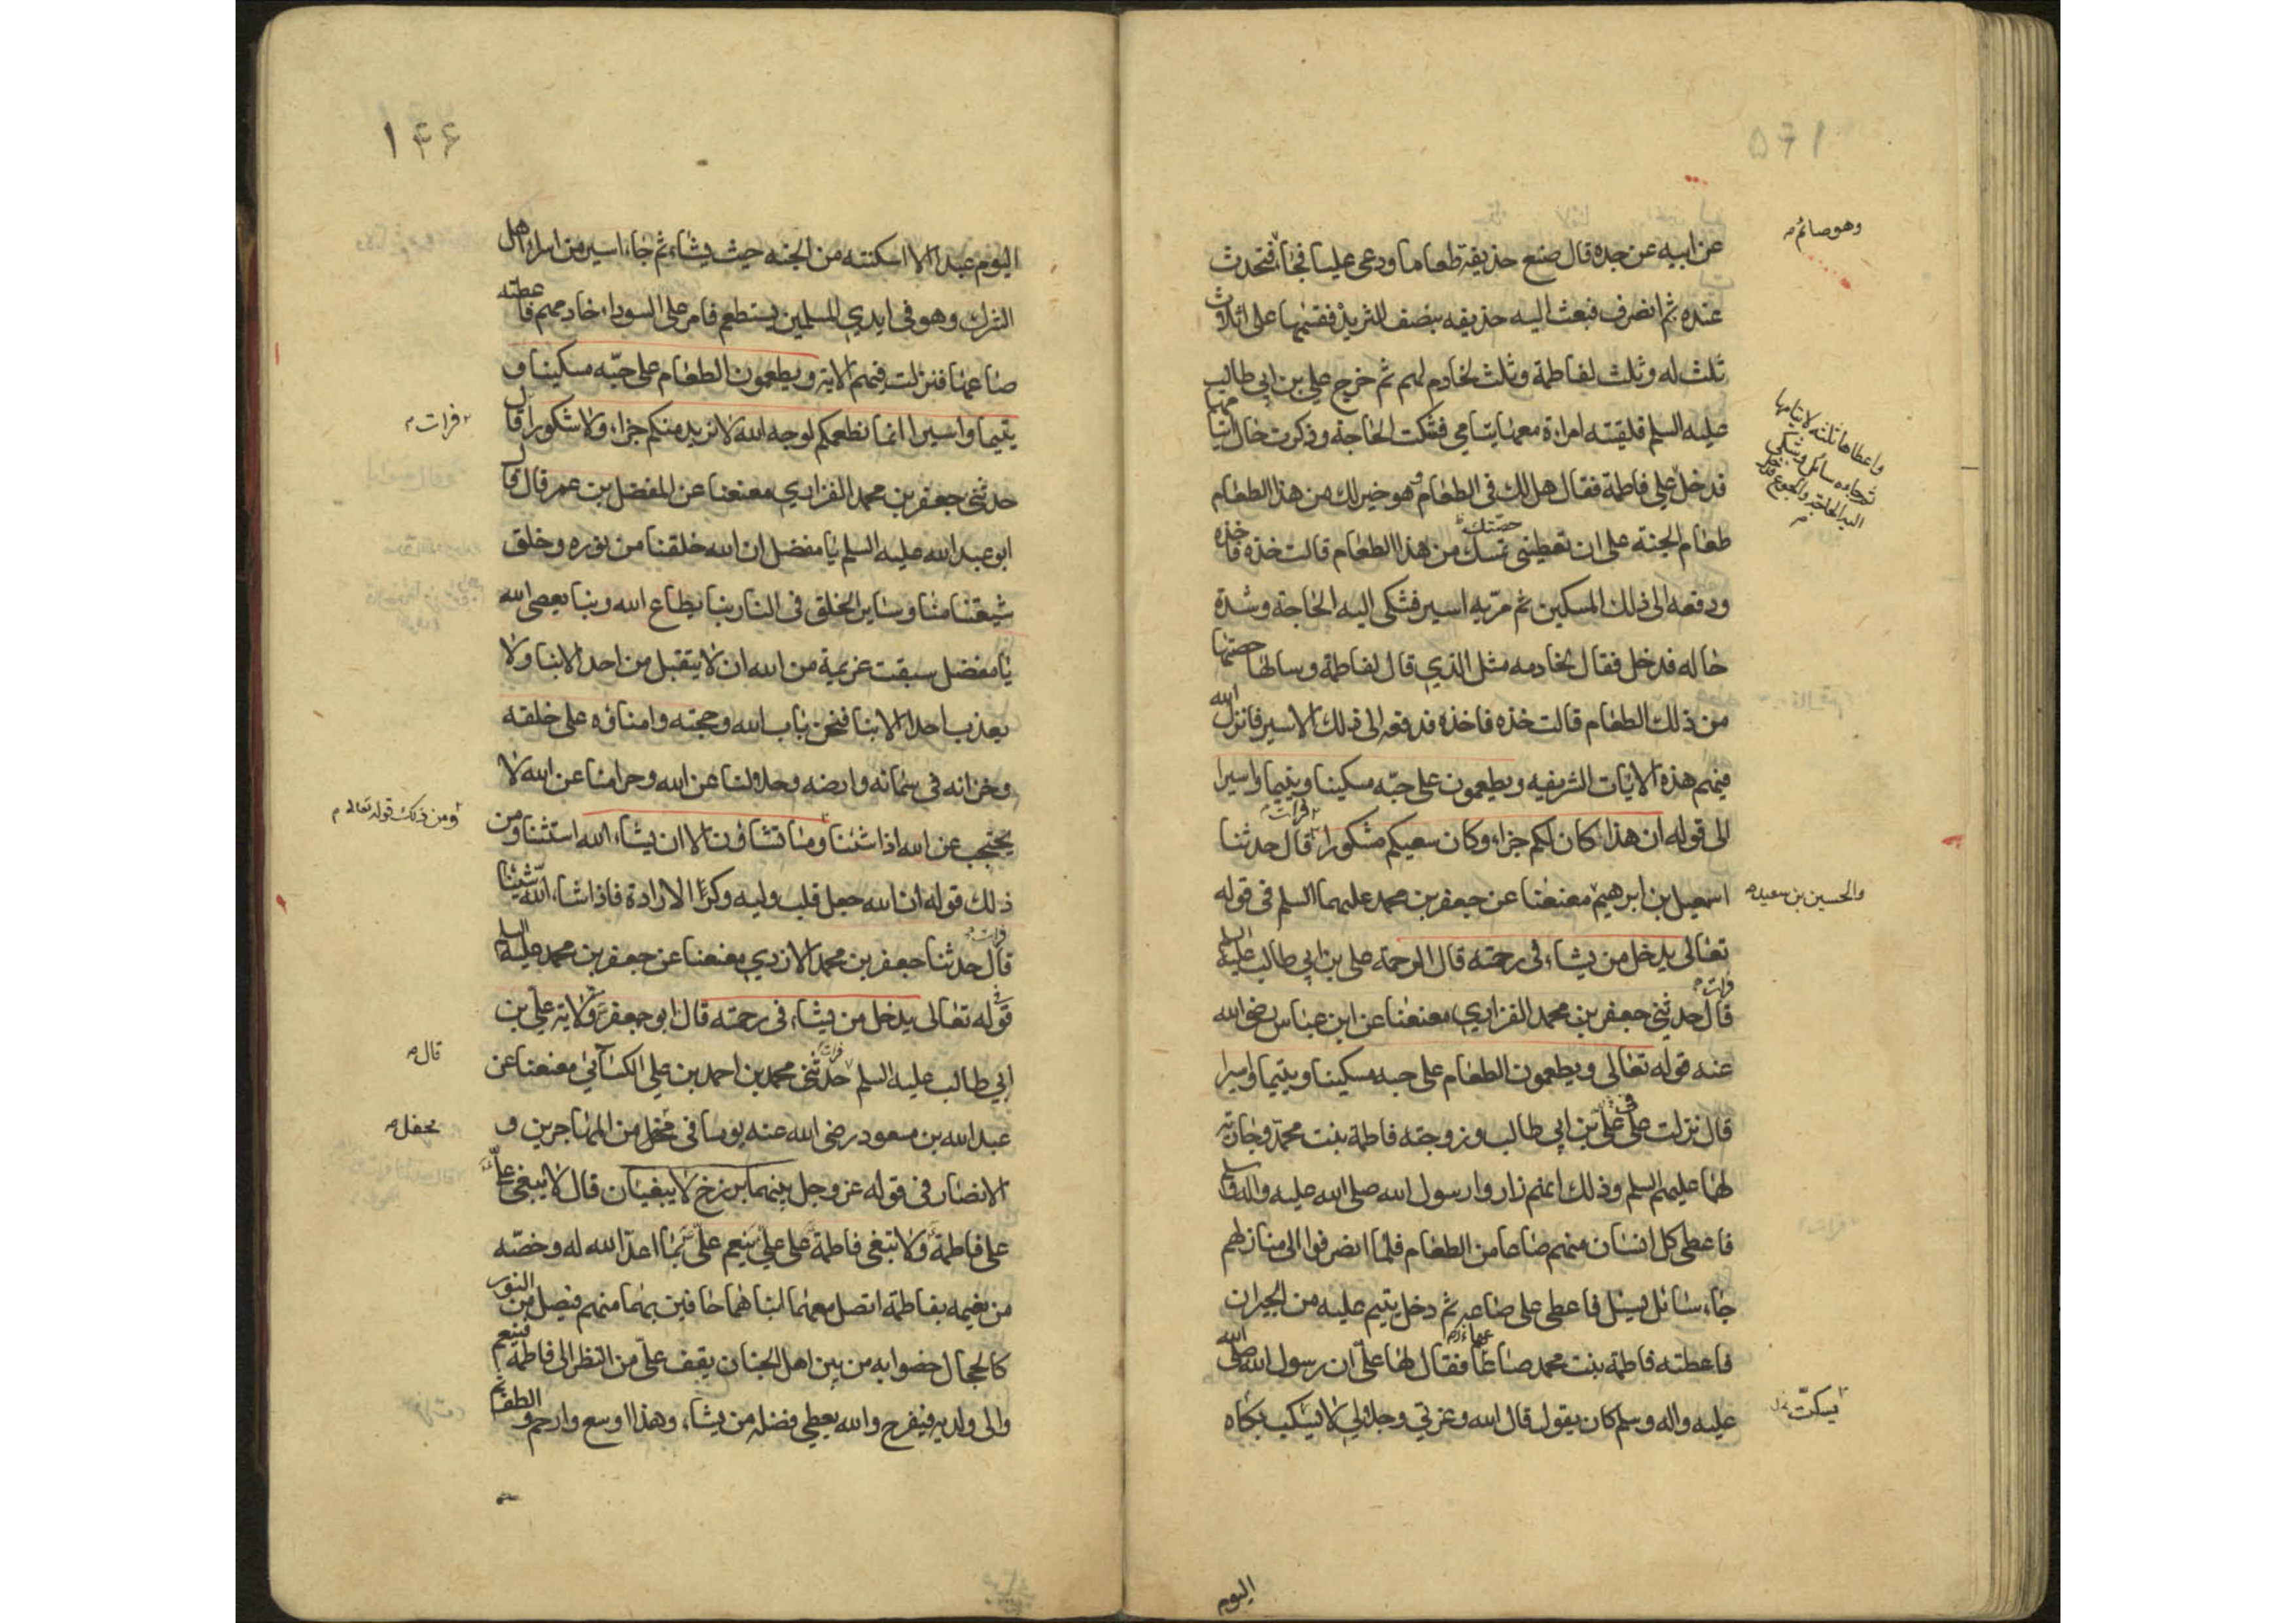 وهو صائم
عن ابيه عن جده قال صنع حذيفة طعاما ودعى عليا فجاء فتحدث
عنده ثم انصرف فبعث اليه حذيفه بنصف الثريد فقسمها على اثلاث
ثلث له وثلث لفاطمة وثلث لخادم لهم ثم خرج علي بن ابي طالب
عليه السلم فلقيته امراة معها يتامى فشكت الحاجة وذكرت حال ايتامها
واعطاها ثلثه لايتامها
ثم جاءه سائل وشكى
اليه الحاجة والجوع
فدخل علي فاطمة فقال هل لك فى الطعام وهو خير لك من هذا الطعام
طعام الجنة على ان تعطينى حصتك من هذا الطعام قالت خذه فاخذه
ودفعه الى ذلك المسكين ثم مر به اسير فشكى اليه الحاجة وشدة
حاله فدخل فقال لخادمه مثل الذي قال لفاطمة وسالها حصتها
من ذلك الطعام قالت خذه فاخذه فدفعه الى ذلك الاسير فانزل الله
فيهم هذه الايات الشريفه ويطعمون على حبه مسكينا ويتيما واسيرا
الى قوله ان هذا كان لكم جزاء وكان سعيكم مشكورا فرات قال حدثنا
اسمعيل بن ابرهيم معنعنا عن جعفر بن محمد عليهما السلم فى قوله
والحسين بن سعيد
تعالى يدخل من يشاء فى رحمته قال الرحمة على بن ابي طالب عليه السلم
فرات قال حدثنى جعفر بن محمد الفزاري معنعنا عن ابن عباس رضى الله
عنه قوله تعالى ويطعمون الطعام على حبه مسكينا ويتيما واسيرا
قال نزلت فى على بن ابي طالب وزوجته فاطمة بنت محمد وجارية
لهما عليهم السلم وذلك انهم زاروا رسول الله صلى الله عليه واله وسلم
فاعطى كل انسان منهم صاعا من الطعام فلما انصرفوا الى منازلهم
جاء سائل يسئل فاعطى على صاعه ثم دخل يتيم عليه من الجيران
فاعطته فاطمة بنت محمد صاعها فقال لها على ان رسول الله صلى الله
عليه واله وسلم كان يقول قال الله وعزتي وجلالي لا يسكت بكاه
يسكت
اليوم
اليوم عبد الا اسكنته من الجنه حيث يشاء ثم جاء اسير من اسراء اهل
الشرك وهو فى ايدي المسلمين يستطعم فامر على السوداء خادمهم فاعطته
صاعها فنزلت فيهم الاية ويطعمون الطعام على حبه مسكينا و
يتيما واسيرا انما نطعمكم لوجه الله لا نريد منكم جزاء ولا شكورا قال
فرات
حدثنى جعفر بن محمد الفزاري معنعنا عن المفضل بن عمر قال قال
ابو عبد الله عليه السلم يا مفضل ان الله خلقنا من نوره وخلق
شيعتنا منا وساير الخلق فى النار بنا يطاع الله وبنا يعصى الله
يا مفضل سبقت عزيمة من الله ان لا يتقبل من احد الا بنا ولا
يعذب احدا الا بنا فنحن باب الله وحجته وامناؤه على خلقه
وخزانه فى سمائه وارضه وحلالنا عن الله وحرامنا عن الله لا
يحتجب عن الله اذا شئنا وما تشاؤن الا ان يشاء الله استثنا ومن
ومن ذلك قوله تعالى
ذلك قوله ان الله جعل قلب وليه وكرا الارادة فاذا شاء الله شئنا
فرات قال حدثنا جعفر بن محمد الازدي معنعنا عن جعفر بن محمد عليه السلم
فى قوله تعالى يدخل من يشاء فى رحمته قال ابو جعفر ولاية على بن
ابي طالب عليه السلم فرات حدثنى محمد بن احمد بن علي الكسائي معنعنا عن
قال
عبد الله بن مسعود رضى الله عنه يوما فى محفل من المهاجرين و
محفل
الانصار فى قوله عز وجل بينهما برزخ لا يبغيان قال لا يبغى على
على فاطمة ولا تبغى فاطمة على على ينعم على بما اعد الله له وخصه
من نعيمه بفاطمة اتصل معهما ابناهما حافين بهما منهم فيصل من النور
كالحجال خصوا به من بين اهل الجنان يقف على من النظر الى فاطمة فينعم
والى ولديه فيفرح والله يعطي فضله من يشاء وهذا اوسع وارحم و